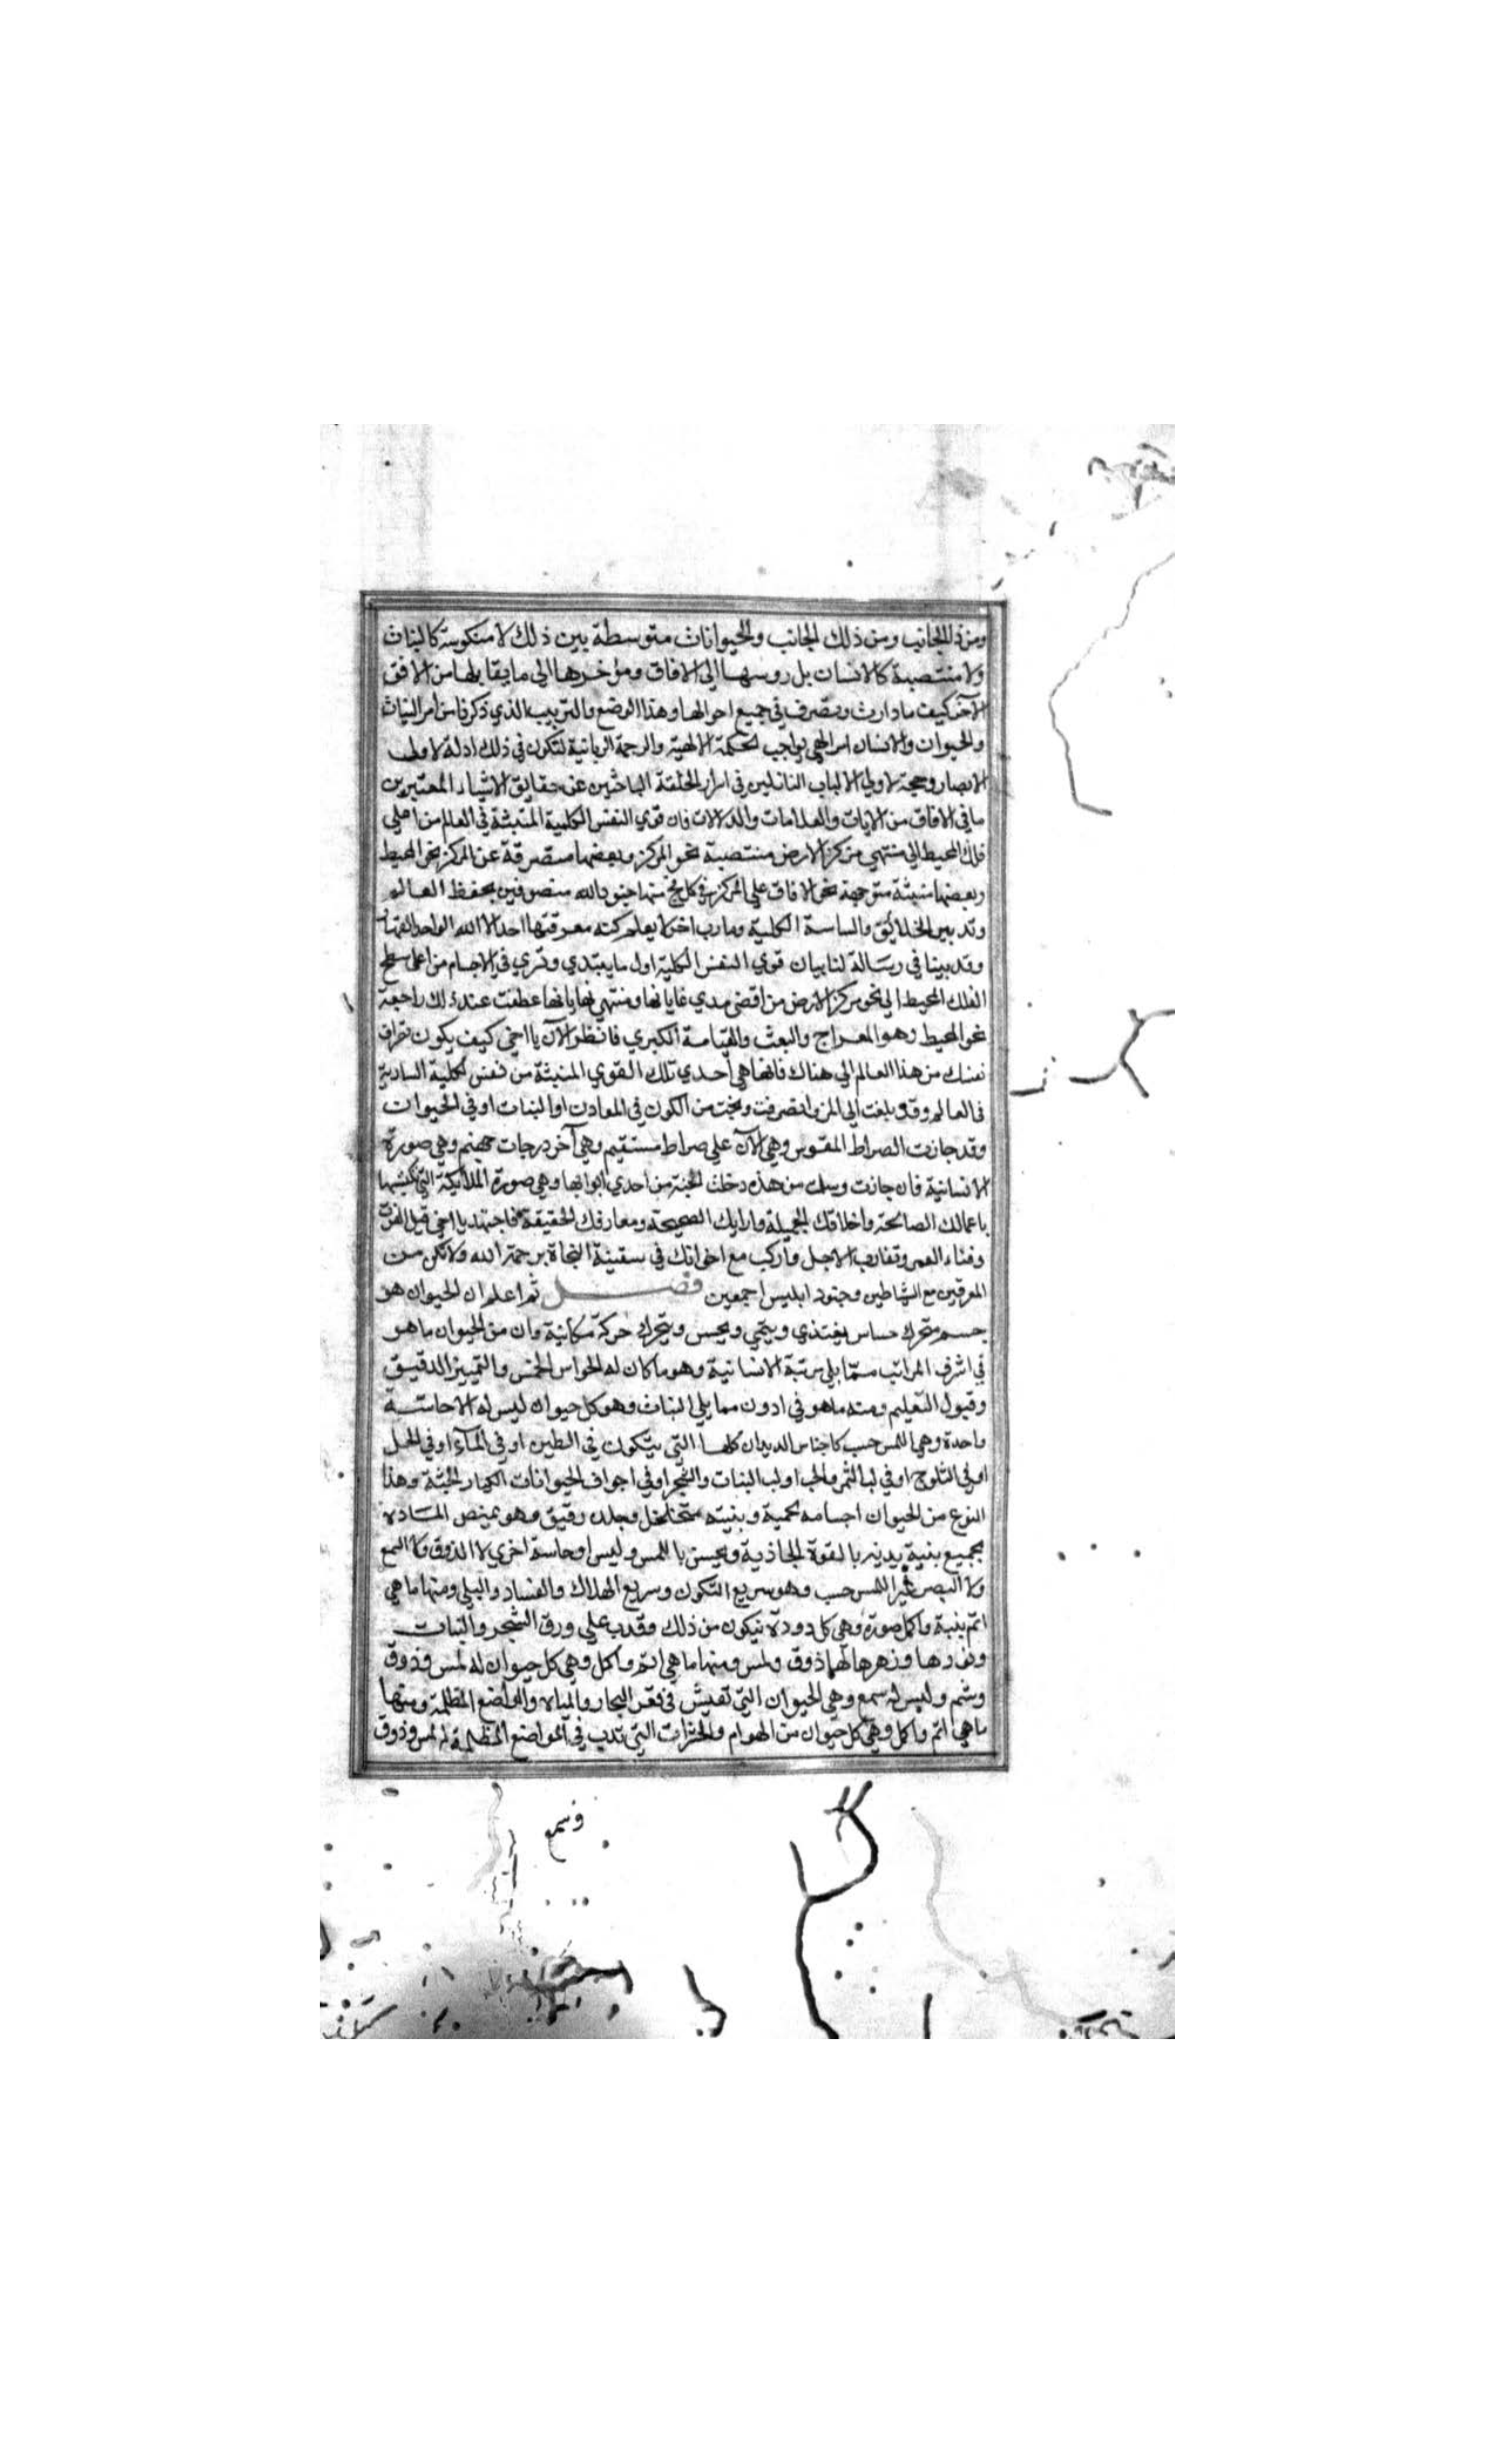 ومن ذلك الجانب ومن ذلك الجانب والحيوانات متوسطة بين ذلك لا منكوسة كالنبات
ولا منتصبة كالانسان بل روسها الي الافاق ومؤخرها الي ما يقابلها من الافق
الآخر كيف ما دارت وتصرف في جميع احوالها وهذا الوضع والترتيب الذي ذكرنا من امر النبات
والحيوان والانسان امر الهي بواجب الحكمة الالهية والرحمة الربانية لتكون في ذلك ادلة لاولي
الابصار وحجة لاولي الالباب الناظرين في اسرار الخلقة الباحثين عن حقايق الاشياء المعتبرين
ما في الافاق من الايات والعلامات والدلالات فان قوي النفس الكلية المنبثة في العالم من اعلي
فلك المحيط الي منتهي مركز الارض منتصبة نحو المركز وبعضها منصرفة عن المركز نحو المحيط
وبعضها منبثة متوجهة نحو الافاق علي المركز في كل فج منها جنود الله منصرفين بحفظ العالم
وتدبير الخلائق والساسة الكلية ومارب اخر لا يعلم كنه معرفتها احد الا الله الواحد القهار
وقد بينا في رسالة لنا بيان قوي النفس الكلية اول ما يبتدي وتسري في الاجسام من اعلي سطح
الفلك المحيط الي نحو مركز الارض من اقصي مدي غاياتها ومنتهي نهاياتها عطفت عند ذلك راجعة
نحو المحيط وهو المعراج والبعث والقيامة الكبري فانظر الآن يا اخي كيف يكون
نفسك من هذا العالم الي هناك فانها هي احدي تلك القوي المنبثة من نفس الكلية السارية
في العالم وقد بلغت الي المركز وانصرفت ونجت من الكون في المعادن او النبات او في الحيوان
وقد جازت الصراط المقوس وهي الآن علي صراط مستقيم وهي آخر درجات جهنم وهي صورة
الانسانية فان جازت وسلمت من هذه دخلت الجنة من احدي ابوابها وهي صورة الملائكة التي تكتسبها
باعمالك الصالحة واخلاقك الجميلة وارايك الصحيحة ومعارفك الحقيقة فاجتهد يا اخي قبل الفوت
وفناء العمر وتقارب الاجل واركب مع اخوانك في سفينة النجاة برحمة الله ولا تكن من
المغرقين مع الشياطين وجنود ابليس اجمعين فصل ثم اعلم ان الحيوان هو
جسم متحرك حساس يغتذي وينمي ويحس ويتحرك حركة مكانية وان من الحيوان ما هو
في اشرف المراتب مما يلي مرتبة الانسانية وهو ما كان له الحواس الخمس والتمييز الدقيق
وقبول التعليم ومنه ما هو في ادون مما يلي النبات وهو كل حيوان ليس له الا حاسة
واحدة وهي اللمس حسب كاجناس الديدان كلها التي يتكون في الطين او في المآء او في الخل
او في الثلوج او في لب الثمر والحب او لب النبات والشجر او في اجواف الحيوانات الكبار الجثة وهذا
النوع من الحيوان اجسامه لحمية وبنيته متخلخل وجلده رقيق وهو يمتص المادة
بجميع بنية بدنه بالقوة الجاذبة ويحس باللمس وليس له حاسة اخري لا الذوق ولا السمع
ولا البصر غير اللمس حسب وهو سريع التكون وسريع الهلاك والفساد والبلي ومنها ما هي
اتم بنية واكمل صورة وهي كل دودة تتكون من ذلك وتدب علي ورق الشجر والنبات
ونورها وزهرها لها ذوق ولمس ومنها ما هي اتم واكمل وهي كل حيوان له لمس وذوق
وشم وليس له سمع وهي الحيوان التي تعيش في قعر البحار والمياه والمواضع المظلمة ومنها
ما هي اتم واكمل وهي كل حيوان من الهوام والحشرات التي تدب في المواضع المظلمة له لمس وذوق
وسمع